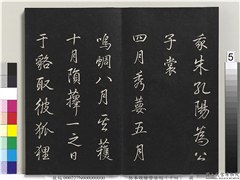 我朱孔陽為公
子裳
四月秀葽五月
鳴蜩八月其穫
十月隕蘀一之日
于貉取彼狐狸
5